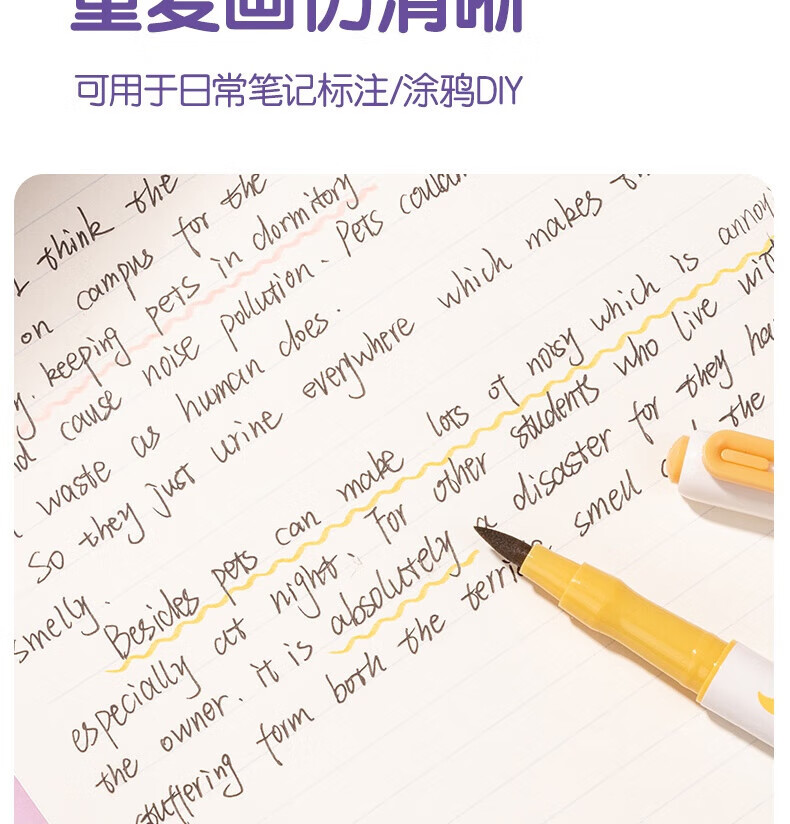 重复画仍清晰
可用于日常笔记标注/涂鸦DIY
I think the
on campus for the
keeping pets in dormitory
cause noise pollution、Pets
waste as human does.
So they just urine everywhere which makes
smelly.
Besides pets can make lots of noisy which is annoy
especially at night、For other students who live
the owner. it is absolutely a disaster for they
stuffering form both the smell the